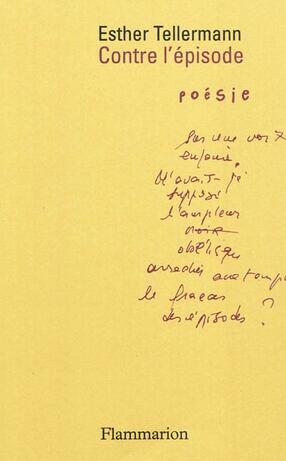 Esther Tellermann
Contre l'épisode
poésie
Sur une voix
enfouie.
supposé
l'ampleur
noire
obélisque
arrachés aux temps
le fracas
des épisodes ?
Flammarion